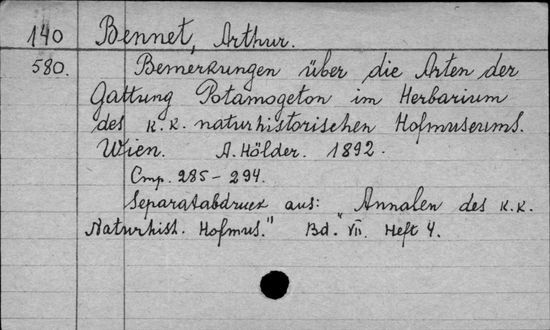 140 Bennet, Arthur.
580. Bemerkungen über die Arten der
Gattung Potamogeton im Herbarium
des K.K. naturhistorischen Hofmuseums.
Wien. A. Hölder. 1892.
Cmp. 285-294.
Separatabdruck aus: "Annalen des K.K.
Naturhist. Hofmus." Bd. VII. Heft 4.